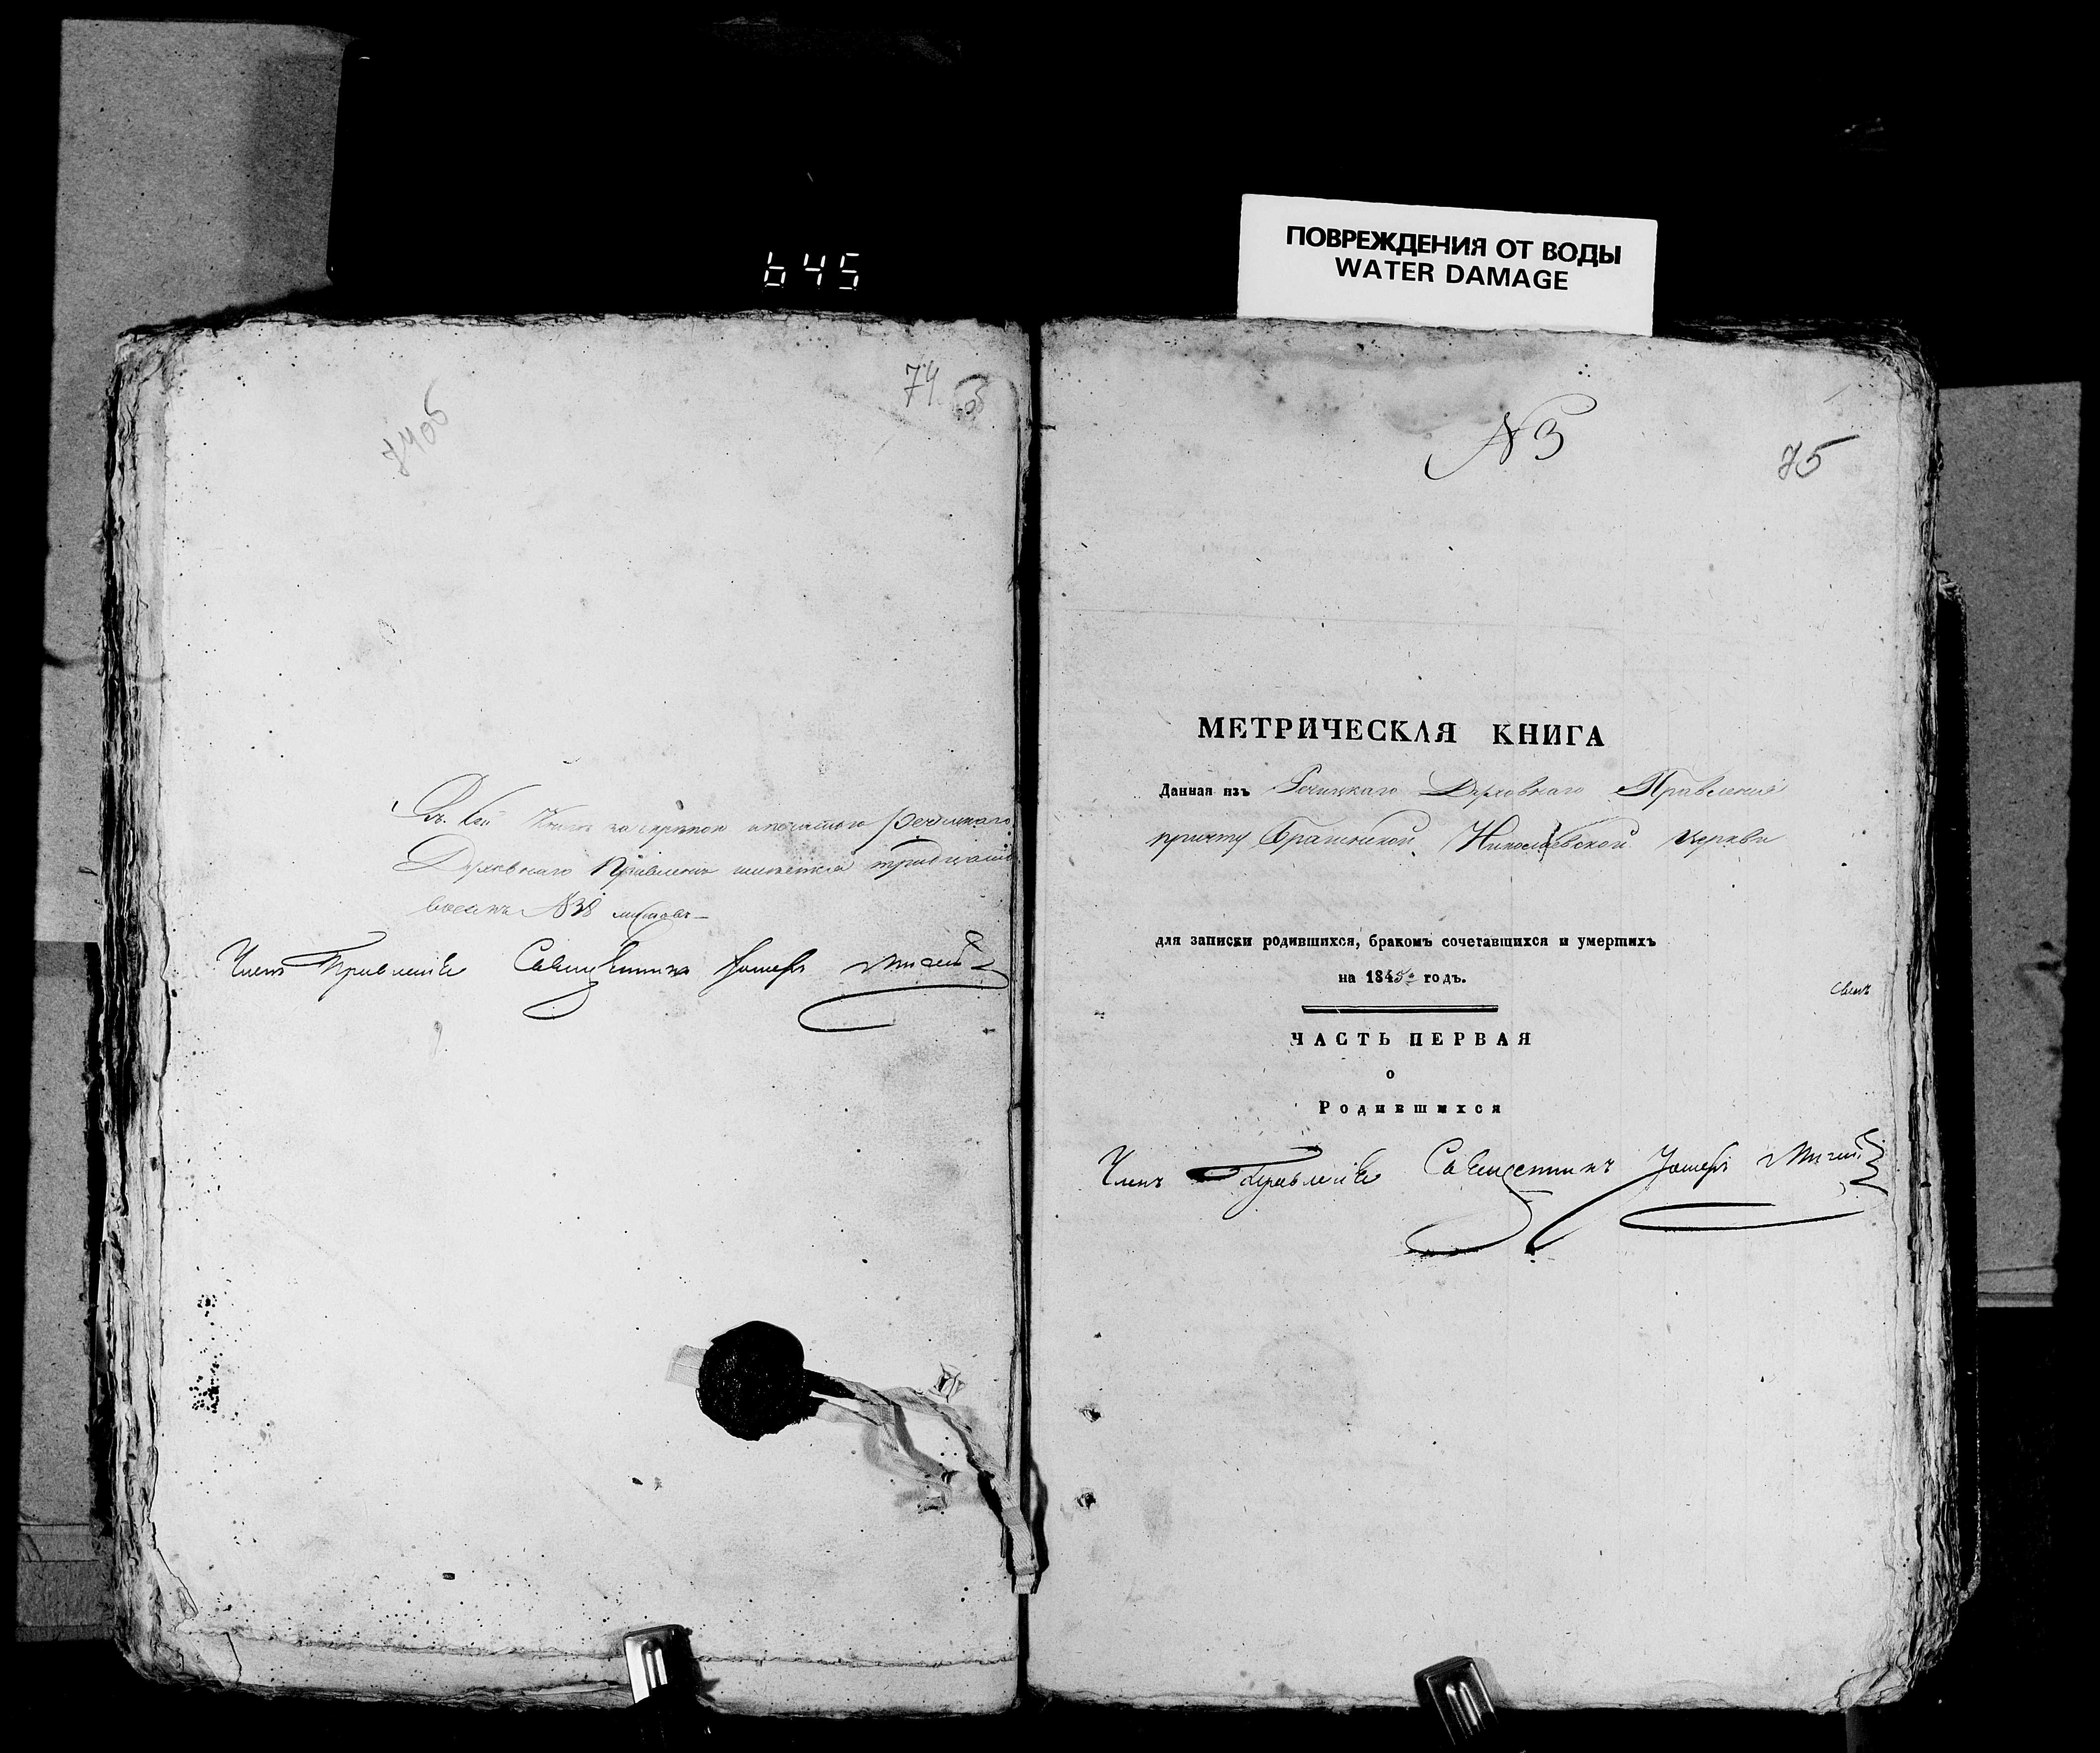 645
ПОВРЕЖДЕНИЯ ОТ ВОДЫ
WATER DAMAGE
74об
74
Въ сей Книгѣ за скрѣпою и печатью Речицкаго
Духовнаго Правленія тридцать
восемь №38 листовъ
Членъ Правленія Священникъ
№3
75
МЕТРИЧЕСКАЯ КНИГА
Данная изъ Речицкаго Духовнаго Правленія
причту Брагинской Николаевской Церкви
для записки родившихся, бракомъ сочетавшихся и умершихъ
на 1845й годъ.
ЧАСТЬ ПЕРВАЯ
о
Родившихся
Членъ Правленія Священникъ